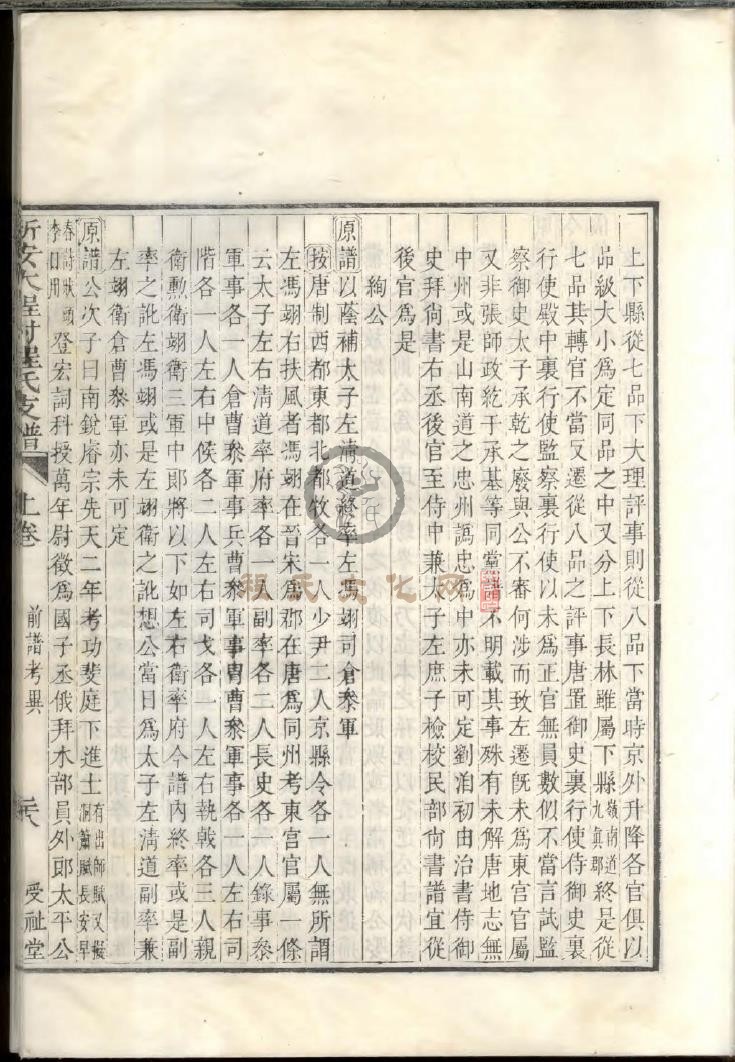 上下縣從七品下大理評事則從八品下當時京外升降各官俱以
品級大小爲定同品之中又分上下長林雖屬下縣嶺南道九眞郡終是從
七品其轉官不當反遷從八品之評事唐置御史裏行使侍御史裏
行使殿中裏行使監察裏行使以未爲正官無員數似不當言試監
察御史太子承乾之廢與公不審何涉而致左遷旣未爲東宫官屬
又非張師政紇于承基等同黨譜不明載其事殊有未解唐地志無
中州或是山南道之忠州譌忠爲中亦未可定劉洎初由治書侍御
史拜尙書右丞後官至侍中兼太子左庶子檢校民部尙書譜宜從
後官爲是
絢公
原譜以蔭補太子左淸道終率左馮翊司倉叅軍
按唐制西都東都北都牧各一人少尹二人京縣令各一人無所謂
左馮翊右扶風者馮翊在晉宋爲郡在唐爲同州考東宫官屬一條
云太子左右淸道率府率各一人副率各二人長史各一人錄事叅
軍事各一人倉曹叅軍事兵曹叅軍事胄曹叅軍事各一人左右司
階各一人左右中候各二人左右司戈各一人左右執戟各三人親
衛勲衛翊衛三軍中郎將以下如左右衛率府今譜内終率或是副
率之訛左馮翊或是左翊衛之訛想公當日爲太子左淸道副率兼
左翊衛倉曹叅軍亦未可定
原譜公次子曰南銳睿宗先天二年考功斐庭下進士有出師賦又擬洞簫賦長安早
春詩狀頭李日用登宏詞科授萬年尉徵爲國子丞俄拜木部員外郎太平公
新安大程村程氏支譜 上卷 前譜考異 二八 受祉堂
程氏文化网